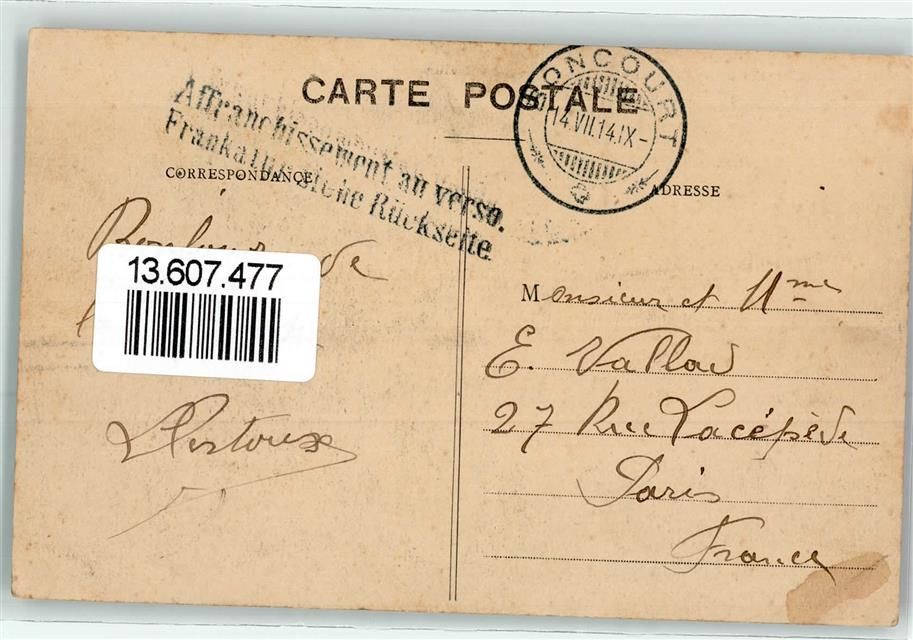 CARTE POSTALE
BONCOURT
14.VII.14.IX-
Affranchissement au verso.
Frankatur siehe Rückseite.
CORRESPONDANCE
ADRESSE
de
13.607.477
Monsieur et Mme
E. Vallad
27 Rue Lacépède
Paris
France